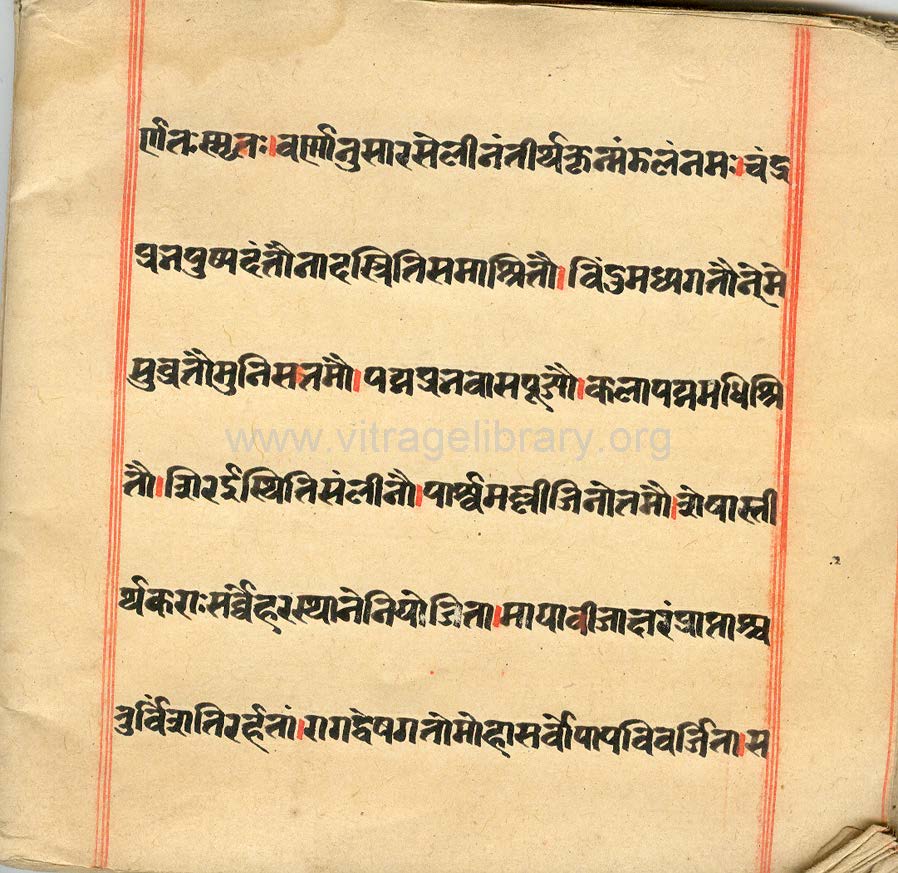 र्णतःस्मृतः।वर्णानुसारसेलीनंतीर्थकृन्मंडलंनमः।चंद्र
प्रनपुष्पदंतौनादस्थितिसमाश्रितौ।विंडुमध्यगतौनेमे
सुव्रतौमुनिसत्तमौ।पद्मप्रनवासपूज्यौ।कलापद्ममधिश्रि
तौ।शिरईस्थितिसंलीनौ।पार्श्वमल्लीजिनोतमौ।शेषास्ती
www.vitragelibrary.org
र्थकराःसर्व्वेहरस्थानेनियोजिता।मायावीजाक्षरंप्राप्ताश्च
तुर्विंशतिरर्हतां।रागद्वेषगतोमोहासर्वोपापविवर्जिता।स